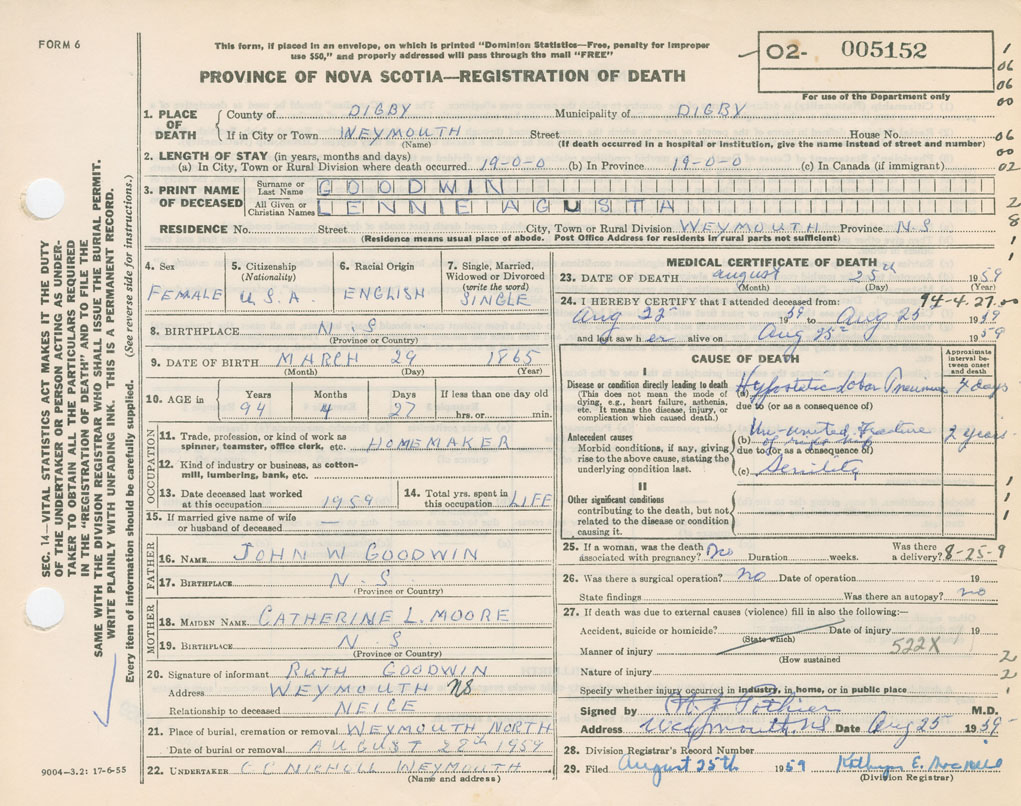 FORM 6
This form, if placed in an envelope, on which is printed "Dominion Statistics—Free, penalty for improper
use $50," and properly addressed will pass through the mail "FREE"
PROVINCE OF NOVA SCOTIA—REGISTRATION OF DEATH
02- 005152
For use of the Department only
1
06
06
00
06
00
02
2
8
1
1. PLACE OF DEATH
County of DIGBY Municipality of DIGBY
If in City or Town WEYMOUTH Street House No.
(Name) (If death occurred in a hospital or institution, give the name instead of street and number)
2. LENGTH OF STAY (in years, months and days)
(a) In City, Town or Rural Division where death occurred 19-0-0 (b) In Province 19-0-0 (c) In Canada (if immigrant)
3. PRINT NAME OF DECEASED
Surname or Last Name GOODWIN
All Given or Christian Names LENNIE AGUSTA
RESIDENCE No. Street City, Town or Rural Division WEYMOUTH Province N.S
(Residence means usual place of abode. Post Office Address for residents in rural parts not sufficient)
SEC. 14—VITAL STATISTICS ACT MAKES IT THE DUTY
OF THE UNDERTAKER OR PERSON ACTING AS UNDER-
TAKER TO OBTAIN ALL THE PARTICULARS REQUIRED
IN THE "REGISTRATION OF DEATH" AND TO FILE THE
SAME WITH THE DIVISION REGISTRAR WHO SHALL ISSUE THE BURIAL PERMIT.
WRITE PLAINLY WITH UNFADING INK. THIS IS A PERMANENT RECORD.
Every item of information should be carefully supplied. (See reverse side for instructions.)
4. Sex 5. Citizenship (Nationality) 6. Racial Origin 7. Single, Married, Widowed or Divorced (write the word)
FEMALE U.S.A. ENGLISH SINGLE
8. BIRTHPLACE N.S
(Province or Country)
9. DATE OF BIRTH MARCH 29 1865
(Month) (Day) (Year)
10. AGE in Years Months Days If less than one day old
94 4 27 hrs. or min.
OCCUPATION
11. Trade, profession, or kind of work as spinner, teamster, office clerk, etc. HOMEMAKER
12. Kind of industry or business, as cotton-mill, lumbering, bank, etc.
13. Date deceased last worked at this occupation 1959
14. Total yrs. spent in this occupation LIFE
15. If married give name of wife or husband of deceased —
FATHER
16. NAME JOHN W GOODWIN
17. BIRTHPLACE N.S
(Province or Country)
MOTHER
18. MAIDEN NAME CATHERINE L. MOORE
19. BIRTHPLACE N.S
(Province or Country)
20. Signature of informant RUTH GOODWIN
Address WEYMOUTH NS
Relationship to deceased NEICE
21. Place of burial, cremation or removal WEYMOUTH NORTH
Date of burial or removal AUGUST 28th 1959
22. UNDERTAKER C C NICHOLL WEYMOUTH
(Name and address)
9004-3.2: 17-6-55
MEDICAL CERTIFICATE OF DEATH
23. DATE OF DEATH August 25th 1959
(Month) (Day) (Year)
24. I HEREBY CERTIFY that I attended deceased from: 94-4.27.00
Aug 22 1959 to Aug 25 1959
and last saw her alive on Aug 25 1959
CAUSE OF DEATH
Approximate interval between onset and death
I
Disease or condition directly leading to death
(This does not mean the mode of dying, e.g., heart failure, asthenia, etc. It means the disease, injury, or complication which caused death.)
(a) Hypostatic Lobar Pneumonia 4 days
due to (or as a consequence of)
Antecedent causes
Morbid conditions, if any, giving rise to the above cause, stating the underlying condition last.
(b) Un-united fracture of right hip 2 years
due to (or as a consequence of)
(c) Senility
II
Other significant conditions
contributing to the death, but not related to the disease or condition causing it.
1
1
1
25. If a woman, was the death associated with pregnancy? No Duration weeks. Was there a delivery? 8-25-9
26. Was there a surgical operation? no Date of operation 19
State findings Was there an autopsy? no
27. If death was due to external causes (violence) fill in also the following:—
Accident, suicide or homicide? Date of injury 19
(State which)
Manner of injury 522X
(How sustained)
Nature of injury
Specify whether injury occurred in industry, in home, or in public place
2
2
1
Signed by Pothier M.D.
Address Weymouth NS Date Aug 25 1959
28. Division Registrar's Record Number
29. Filed August 25th 1959 Kathryn E.
(Division Registrar)